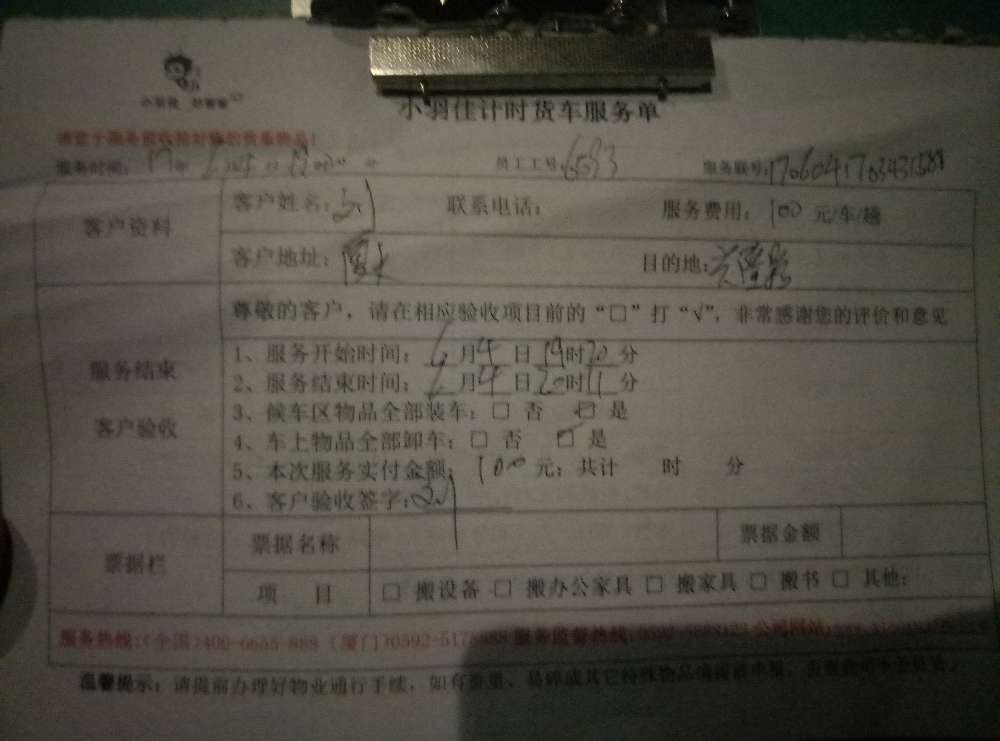 小羽佳计时货车服务单
服务时间: 17年 员工工号: 6593 服务联号: 170604170343
客户资料
客户姓名: 联系电话: 服务费用: 100 元/车/趟
客户地址: 目的地:
尊敬的客户，请在相应验收项目前的“□”打“√”，非常感谢您的评价和意见
服务结束
客户验收
1、服务开始时间: 6月4日19时20分
2、服务结束时间: 6月4日20时11分
3、候车区物品全部装车: □ 否 ☑ 是
4、车上物品全部卸车: □ 否 ☑ 是
5、本次服务实付金额: 100元; 共计 时 分
6、客户验收签字:
票据栏
票据名称 票据金额
项 目 □ 搬设备 □ 搬办公家具 □ 搬家具 □ 搬书 □ 其他:
服务热线:(全国)400-6655-888 (厦门)0592-5178 服务监督热线: 公司网址:
温馨提示: 请提前办理好物业通行手续, 如有贵重、易碎或其它特殊物品请提前申报,